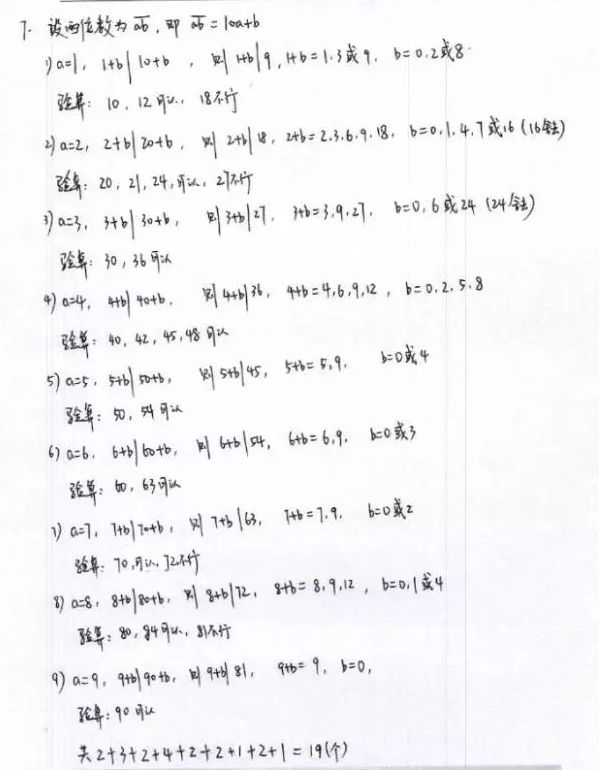 7. 设两位数为ab, 即 ab=10a+b
1) a=1, 1+b|10+b, 则 1+b|9, 1+b=1.3或9, b=0.2或8.
验算: 10, 12可以, 18不行
2) a=2, 2+b|20+b, 则 2+b|18, 2+b=2.3.6.9.18, b=0,1,4,7或16 (16舍去)
验算: 20, 21, 24,可以, 27不行
3) a=3, 3+b|30+b, 则3+b|27, 3+b=3,9,27, b=0,6或24 (24舍去)
验算: 30, 36可以
4) a=4, 4+b|40+b, 则4+b|36, 4+b=4,6,9,12, b=0.2.5.8
验算: 40, 42, 45,48可以
5) a=5, 5+b|50+b, 则5+b|45, 5+b=5,9, b=0或4
验算: 50, 54可以
6) a=6, 6+b|60+b, 则6+b|54, 6+b=6,9, b=0或3
验算: 60, 63可以
7) a=7, 7+b|70+b, 则7+b|63, 7+b=7.9. b=0或2
验算: 70,可以, 72不行
8) a=8, 8+b|80+b, 则8+b|72, 8+b=8,9,12, b=0,1或4
验算: 80, 84可以, 81不行
9) a=9, 9+b|90+b, 则9+b|81, 9+b=9, b=0,
验算: 90可以
共2+3+2+4+2+2+1+2+1=19(个)